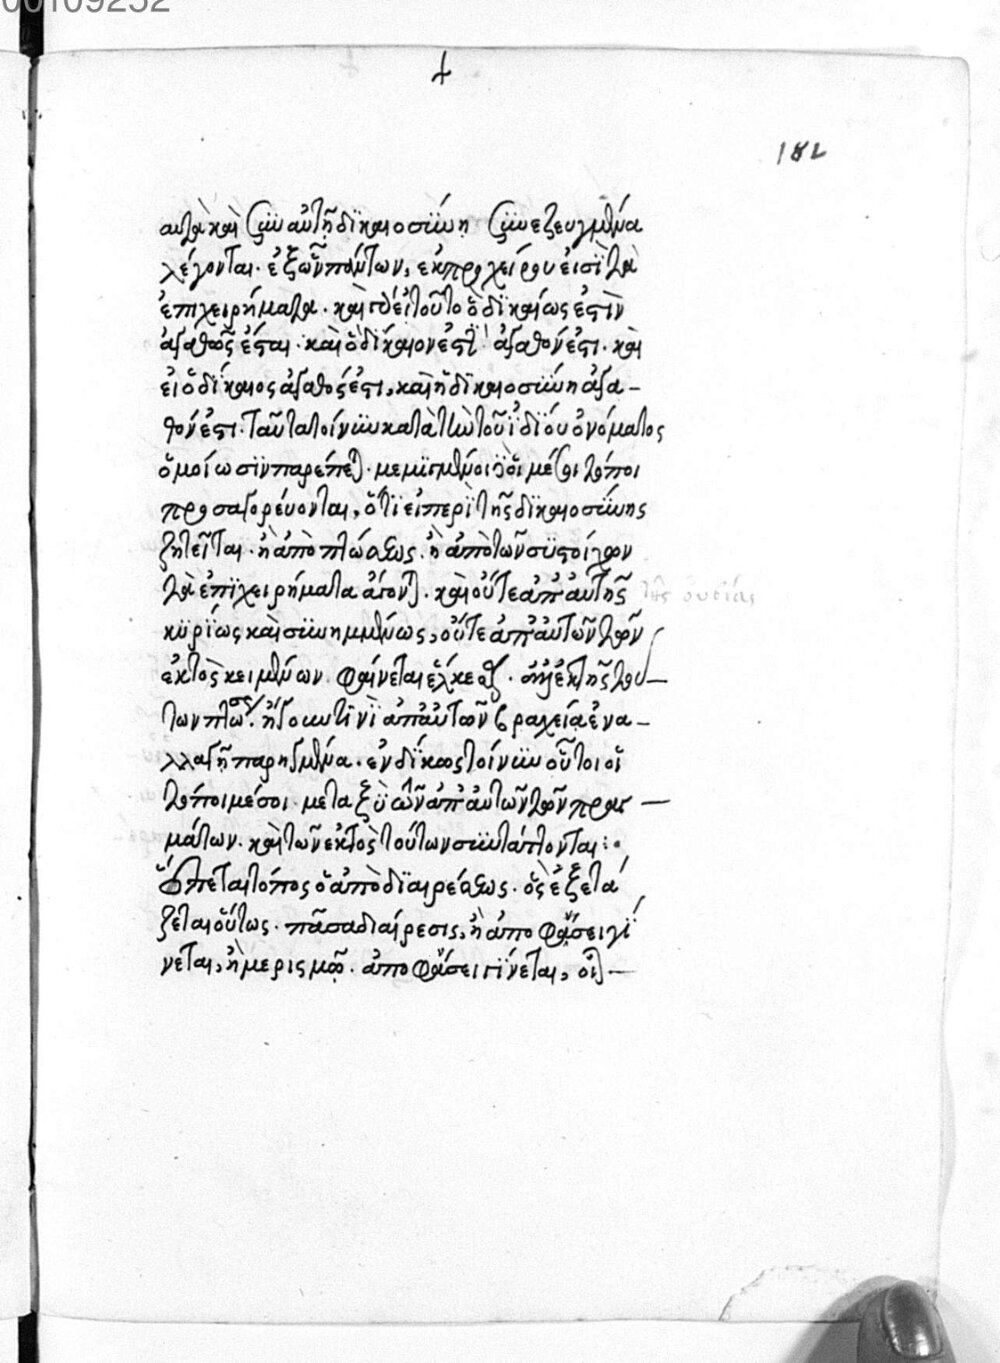 00109252
182
αυτὰ καὶ σὺν αὐτῇ δϊκαιοσύνῃ συνεζευγμένα
λέγονται. ἐξ ὧν πάντων, ἐκ προχείρου εἰσὶ τὰ
ἐπιχειρήματα. καὶ γὰρ εἰ τοῦτο ὃ δικαίως ἐστὶν
ἀγαθῶς ἐσται. καὶ ὃ δίκαιον ἐστὶ ἀγαθόν ἐστι. καὶ
εἰ ὁ δίκαιος ἀγαθός ἐστι, καὶ ἡ δικαιοσύνη ἀγα-
θόν ἐστι. ταῦτα τοίνυν κατὰ τὴν τοῦ ἰδίου ὀνόματος
ὁμοίωσϊν παρέπεται. μεμϊγμένοι δὲ οἱ μέσοι τόποι
προσαγορεύονται, ὅτϊ εἰ περὶ τῆς δϊκαιοσύνης
ζητεῖται. ἢ ἀπὸ πτώσεως. ἢ ἀπὸ τῶν συστοίχων
τὰ ἐπϊχειρήματα ἄγονται. καὶ οὔτε ἀπ' αὐτῆς τῆς οὐσίας
κϋρϊως καὶ συνημμένως, οὔτε ἀπ' αὐτῶν τῶν
ἐκτὸς κειμένων φαίνεται ἕλκεσθαι. ἐκ τῆς του-
των πτώσεως. ἤγουν τινὶ ἀπ' αὐτῶν βραχείᾳ ἐνα-
λλαγῇ παρηγμένα. ἐνδίκως τοίνυν οὗτοι οἱ
τόποι μέσοι μεταξὺ τῶν ἀπ' αὐτῶν τῶν πραγ-
μάτων. καὶ τῶν ἐκτὸς τούτων συντάττονται:
Ἕπεται τόπος ὁ ἀπὸ δϊαιρέσεως. ὃς ἐξετά
ζεται οὕτως. πᾶσα διαίρεσις, ἢ ἀποφάσει γί
νεται, ἢ μερισμῷ. ἀποφάσει γϊνεται, οἷον